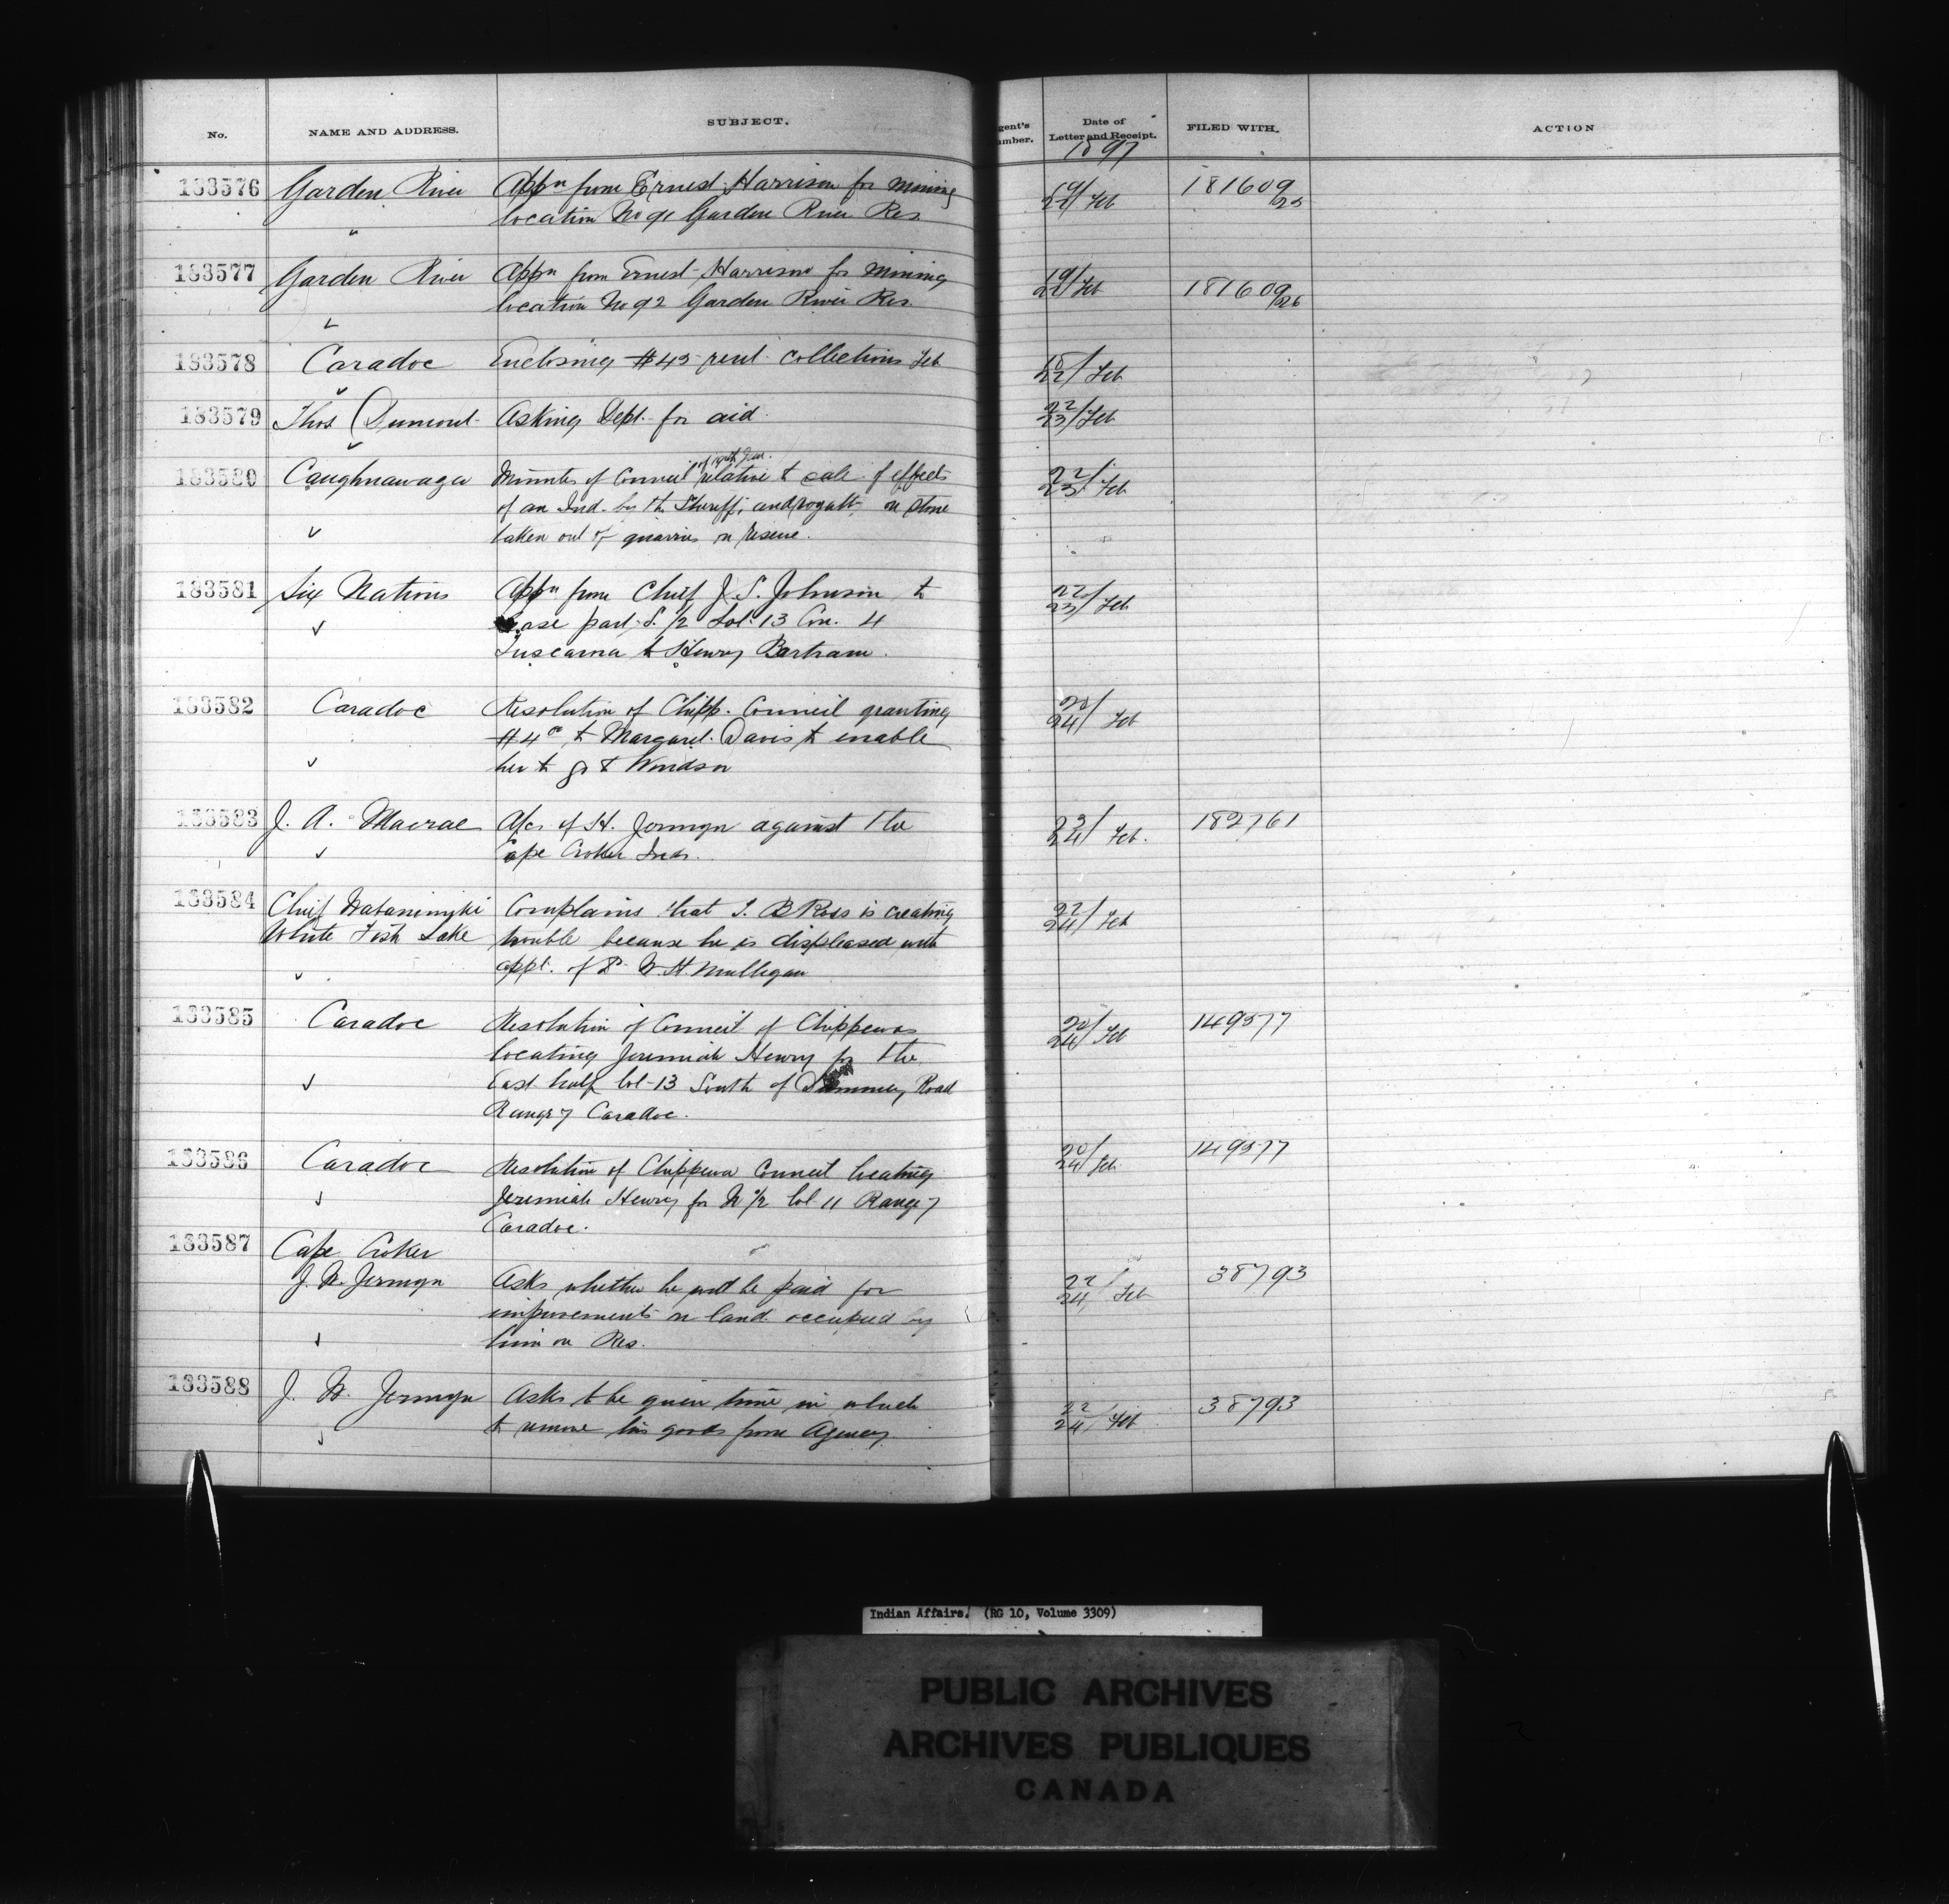 No. NAME AND ADDRESS. SUBJECT. gent's umber. Date of Letter and Receipt. FILED WITH. ACTION
1897
183576 Garden River Appn from Ernest Harrison for mining 19/22 Feb 181609/25
location No 91 Garden River Res
183577 Garden River Appn from Ernest Harrison for mining 19/22 Feb 181609/26
location No 92 Garden River Res.
183578 Caradoc Enclosing $45 rent collections Feb 18/22 Feb
183579 Thos Dumont Asking Dept. for aid. 22/23 Feb
183580 Caughnawaga Minutes of Council of Jan. relative to sale of effects 22/23 Feb
of an Ind. by the Sheriff, and royalty on stone
taken out of quarries on reserve.
183581 Six Nations Appn from Chief J. S. Johnson to 22/23 Feb
lease part S. 1/2 Lot 13 Con. 4
Tuscarora to Henry Bartram.
183582 Caradoc Resolution of Chipp. Council granting 20/24 Feb
$4.00 to Margaret Davis to enable
her to go to Windsor
183583 J. A. Macrae A/c of H. Jermyn against the 23/24 Feb. 182761
Cape Croker Inds.
183584 Chief Complains that J. B Ross is creating 22/24 Feb
White Fish Lake trouble because he is displeased with
appt. of W. H. Mulligan
183585 Caradoc Resolution of Council of Chippewas 20/24 Feb 149577
locating Jeremiah Henry for the
East half lot 13 South of Road
Range 7 Caradoc.
183586 Caradoc Resolution of Chippewa Council locating 20/24 Feb 149577
Jeremiah Henry for N 1/2 lot 11 Range 7
Caradoc.
183587 Cape Croker
J. W. Jermyn Asks whether he will be paid for 22/24 Feb 38793
improvements on land occupied by
him on Res.
183588 J. W. Jermyn Asks to be given time in which 22/24 Feb 38793
to remove his goods from Agency
Indian Affairs. (RG 10, Volume 3309)
PUBLIC ARCHIVES
ARCHIVES PUBLIQUES
CANADA